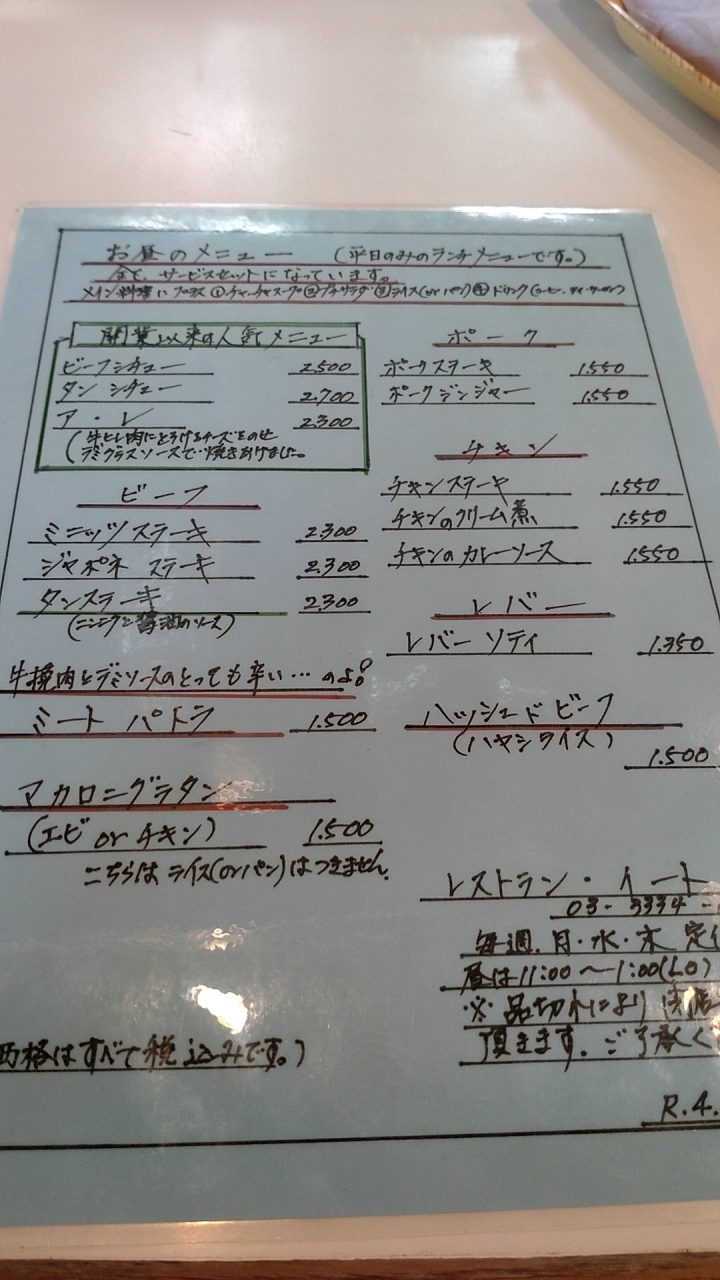 お昼のメニュー (平日のみのランチメニューです。)
全て、サービスセットになっています。
メイン料理に プラス ①チャーチャスープ ②プチサラダ ③ライス(orパン) ④ドリンク
開業以来の人気メニュー
ビーフシチュー 2.500
タン シチュー 2.700
ア・レ 2.300
(牛ヒレ肉にとろけるチーズをのせ
デミグラスソースで焼きあげました。
ビーフ
ミニッツステーキ 2.300
ジャポネ ステーキ 2.300
タンステーキ 2.300
(ニンニクと醤油のソース)
牛挽肉とデミソースのとっても辛い…
ミート パトラ 1.500
マカロニグラタン
(エビ or チキン) 1.500
こちらは ライス(orパン)は つきません。
価格はすべて税込みです。)
ポーク
ポークステーキ 1.550
ポークジンジャー 1.550
チキン
チキンステーキ 1.550
チキンのクリーム煮 1.550
チキンのカレーソース 1.550
レバー
レバー ソティ 1.350
ハッシュドビーフ
(ハヤシライス)
1.500
レストラン・イート
03-3334-
毎週.月・水・木 定
昼は11:00〜1:00(LO)
※品切れにより
頂きます。ご了承く
R.4.